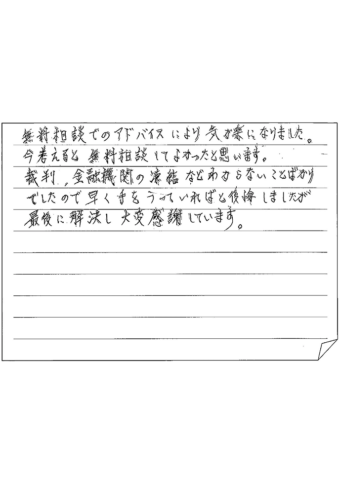 無料相談でのアドバイスにより気が楽になりました。
今考えると無料相談してよかったと思います。
裁判、金融機関の凍結などわからないことばかり
でしたので早く手をうっていればと後悔しましたが
最後に解決し大変感謝しています。